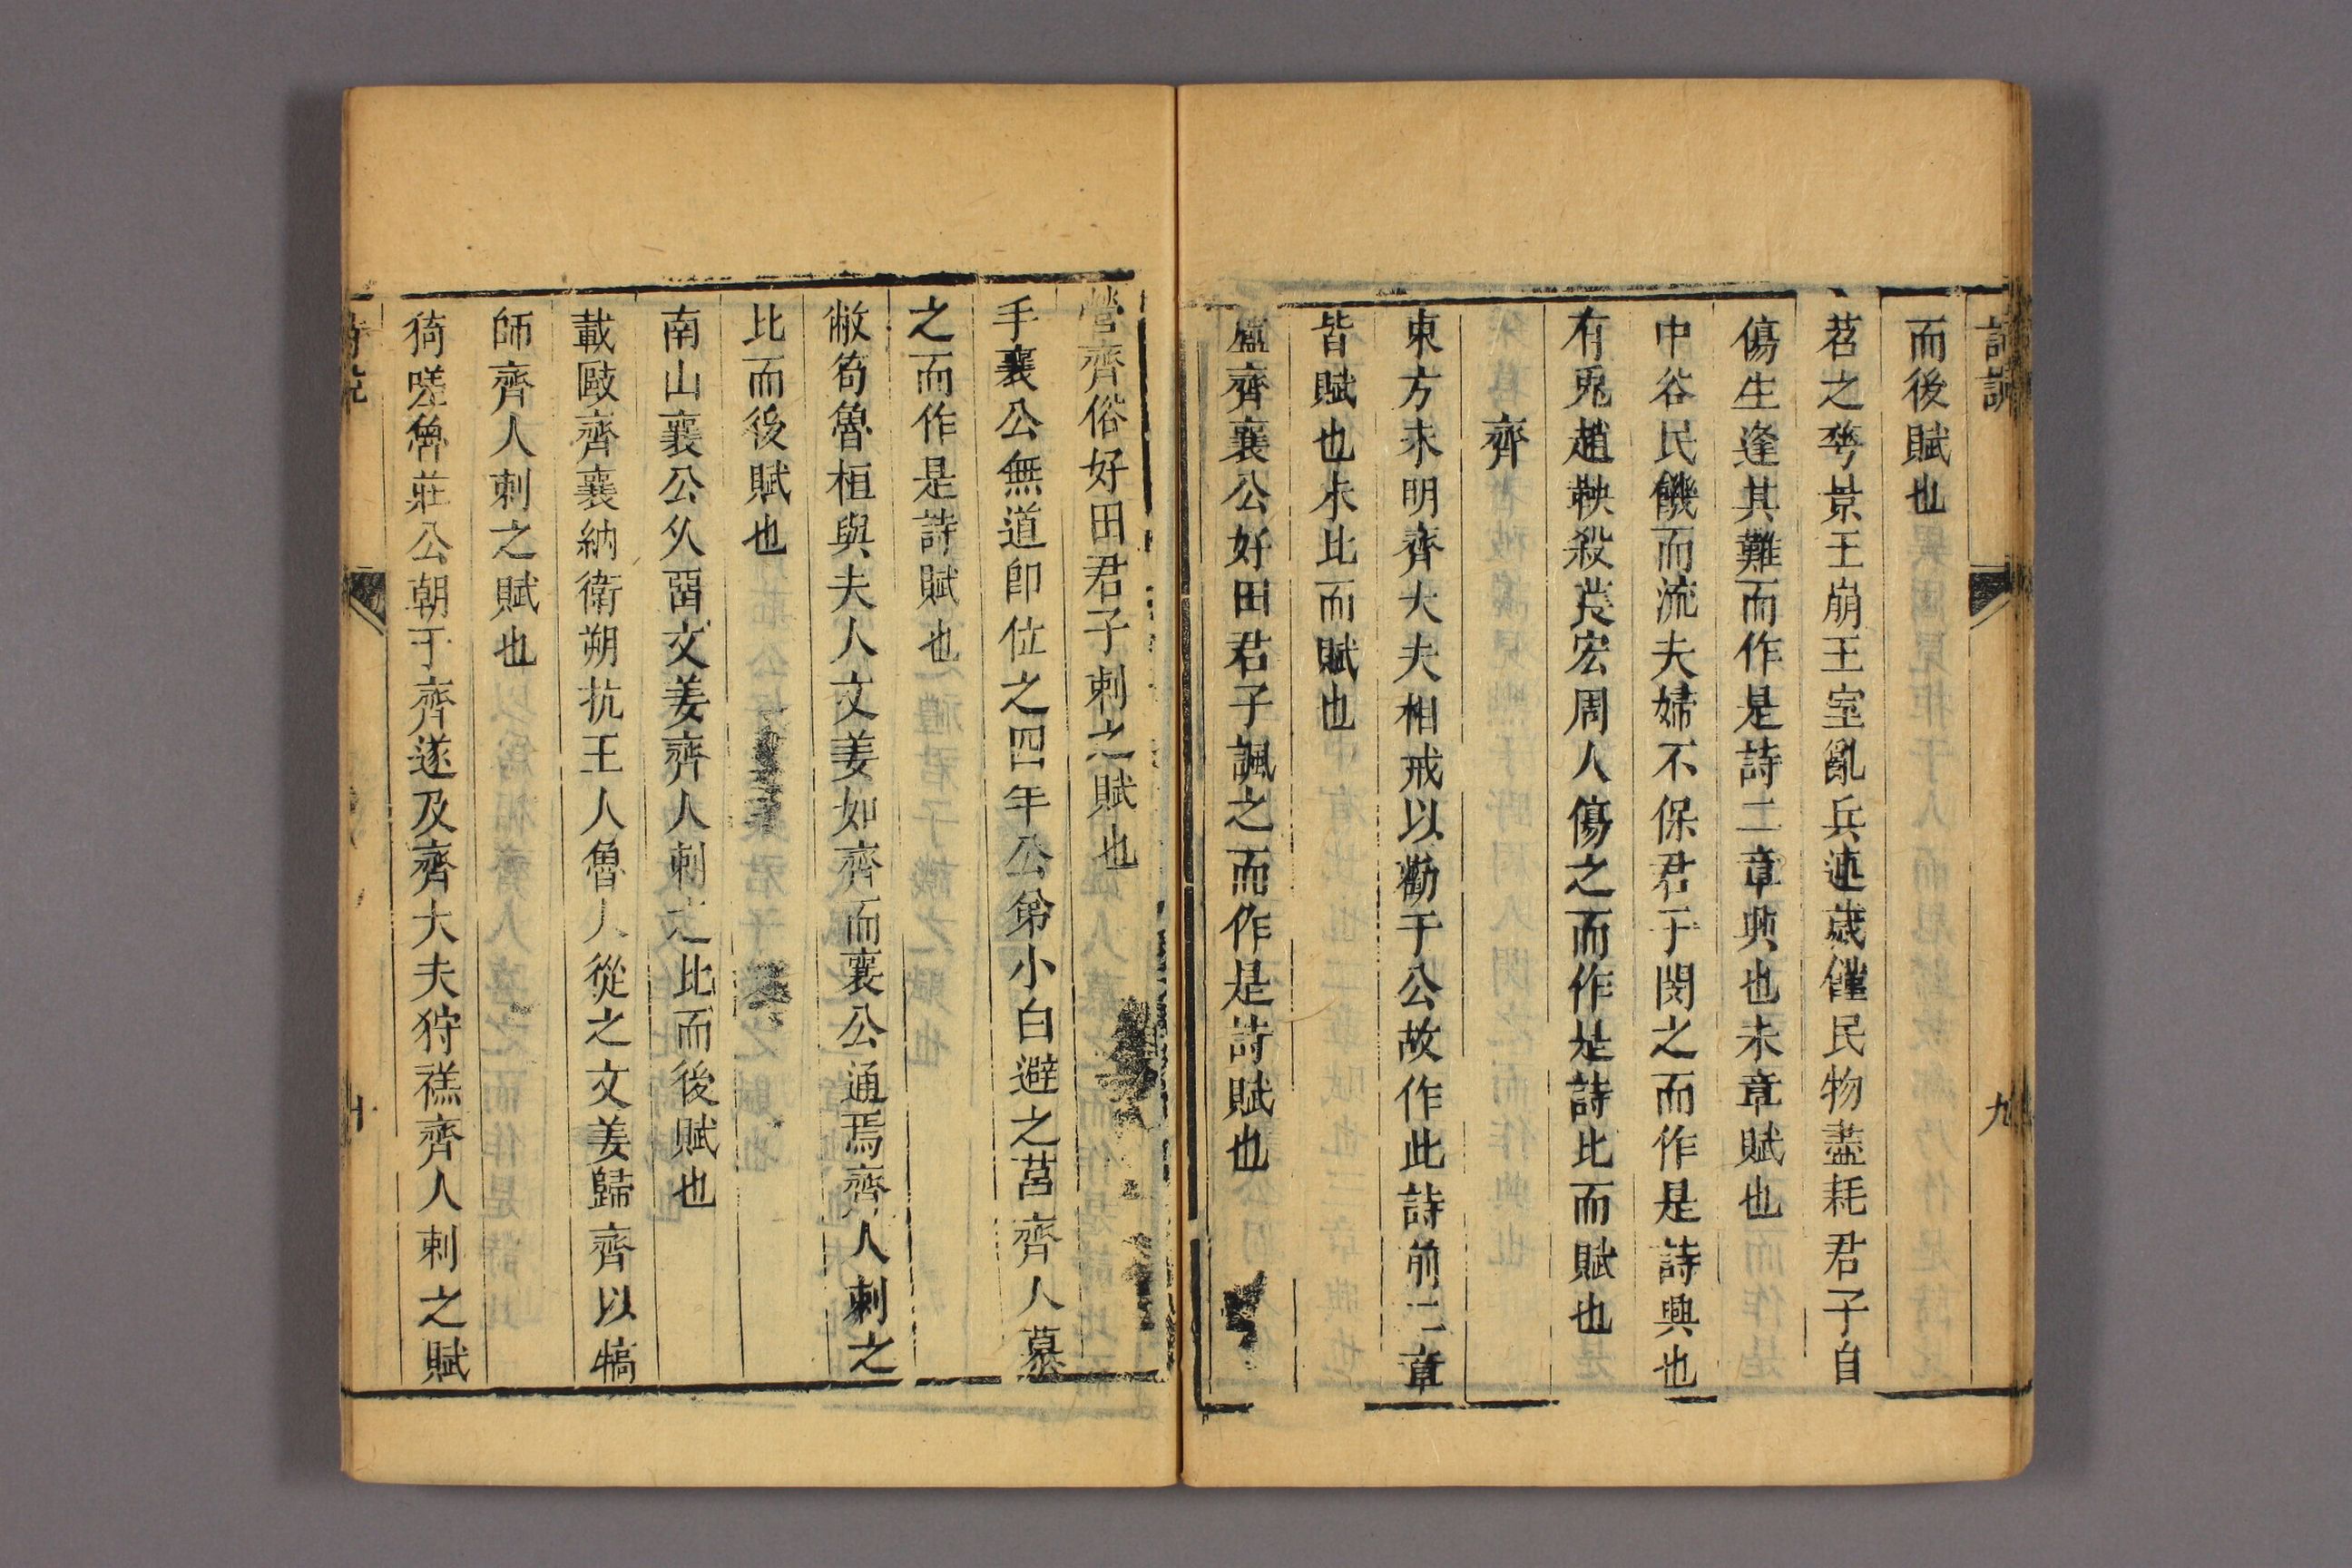 詩說
九
而後賦也
苕之華景王崩王室亂兵連歲僅民物盡耗君子自
傷生逢其難而作是詩二章興也末章賦也
中谷民饑而流夫婦不保君子閔之而作是詩興也
有兎趙鞅殺萇宏周人傷之而作是詩比而賦也
齊
東方未明齊大夫相戒以勸于公故作此詩前二章
皆賦也末比而賦也
盧齊襄公好田君子諷之而作是詩賦也
營齊俗好田君子刺之賦也
手襄公無道卽位之四年公弟小白避之莒齊人慕
之而作是詩賦也
敝笱魯桓與夫人文姜如齊而襄公通焉齊人刺之
比而後賦也
南山襄公久畱文姜齊人刺之比而後賦也
載敺齊襄納衛朔抗王人魯人從之文姜歸齊以犒
師齊人刺之賦也
猗嗟魯莊公朝于齊遂及齊大夫狩禚齊人刺之賦
詩說
十